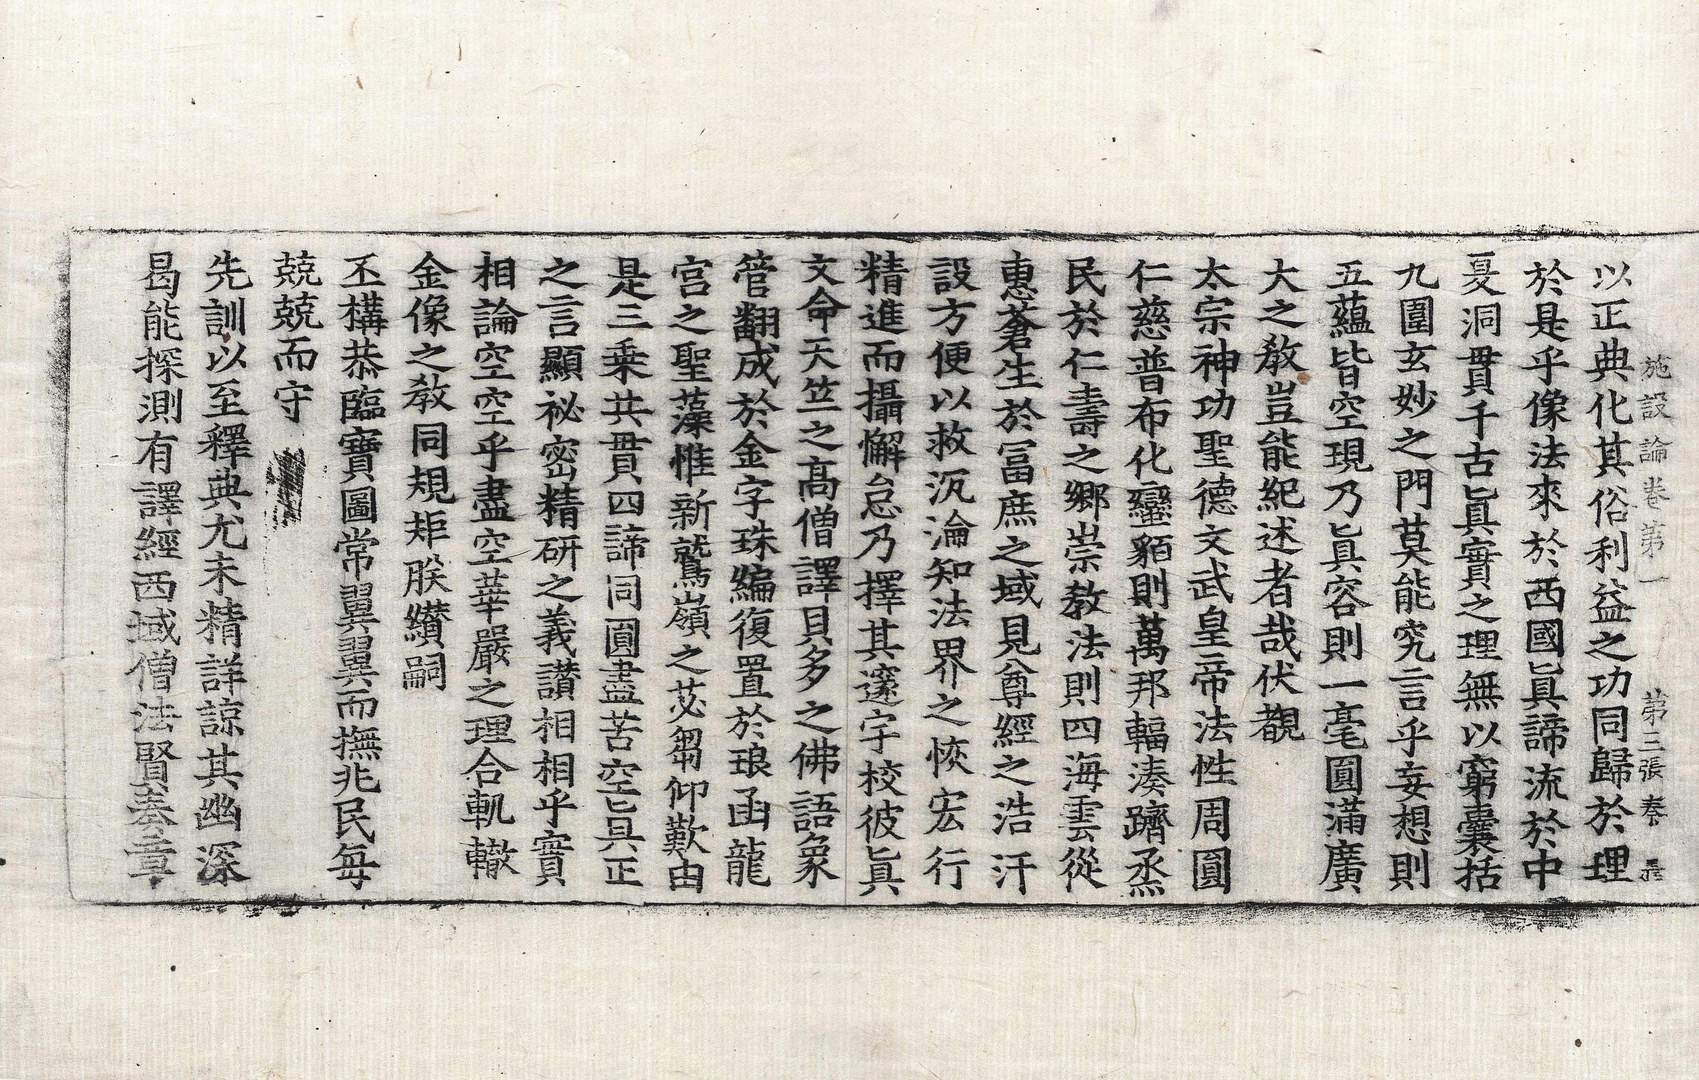 施設論卷第一 第三張 奏
以正典化其俗利益之功同歸於理
於是乎像法來於西國眞諦流於中
夏洞貫千古眞實之理無以窮囊括
九圍玄妙之門莫能究言乎妄想則
五蘊皆空現乃眞容則一毫圓滿廣
大之敎豈能紀述者哉伏覩
太宗神功聖德文武皇帝法性周圓
仁慈普布化蠻貊則萬邦輻湊躋烝
民於仁壽之鄕崇敎法則四海雲從
惠蒼生於冨庶之域見尊經之浩汗
設方便以救沉淪知法界之恢宏行
精進而攝懈怠乃擇其邃宇校彼眞
文命天竺之高僧譯貝多之佛語象
管翻成於金字珠編復置於琅函龍
宮之聖藻惟新鷲嶺之苾芻仰歎由
是三乘共貫四諦同圓盡苦空眞正
之言顯祕密精硏之義讃相相乎實
相論空空乎盡空華嚴之理合軌轍
金像之敎同規矩朕纘嗣
丕構恭臨寶圖常翼翼而撫兆民每
兢兢而守
先訓以至釋典尤未精詳諒其幽深
曷能探測有譯經西域僧法賢奏章